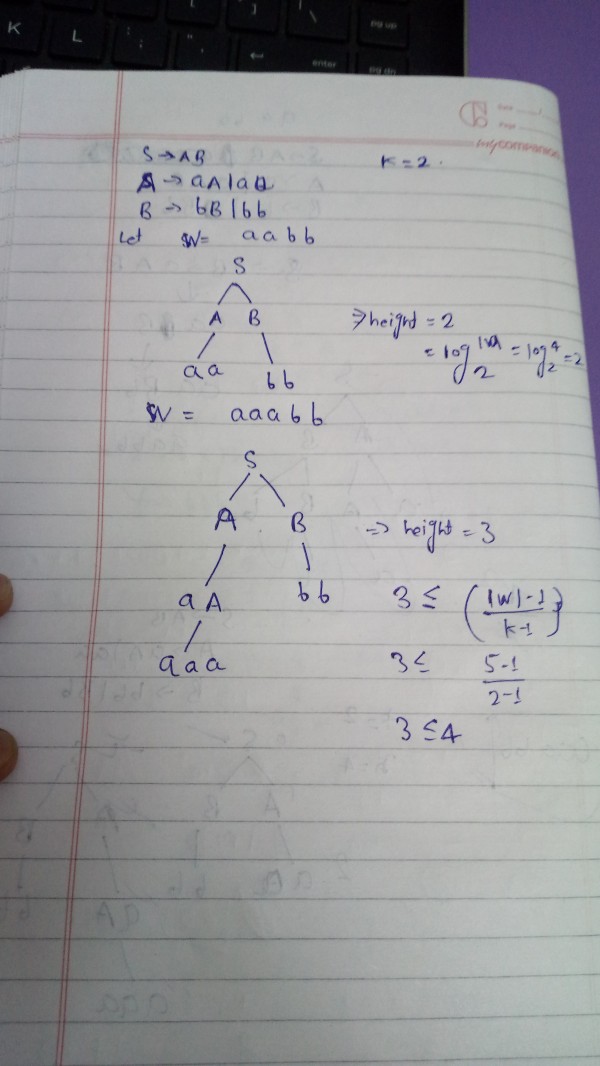 K
L
enter
pg up
pg dn
mycompanion
S → AB
K = 2.
A → aA | aa
B → bB | bb
Let W = aabb
S
A B
⇒ height = 2
aa
bb
= log |W| 2 = log 4 2 = 2
W = aaabb
S
A B
⇒ height = 3
aA
bb
3 ≤ (|W|-1 / K-1)
aaa
3 ≤ 5-1 / 2-1
3 ≤ 4